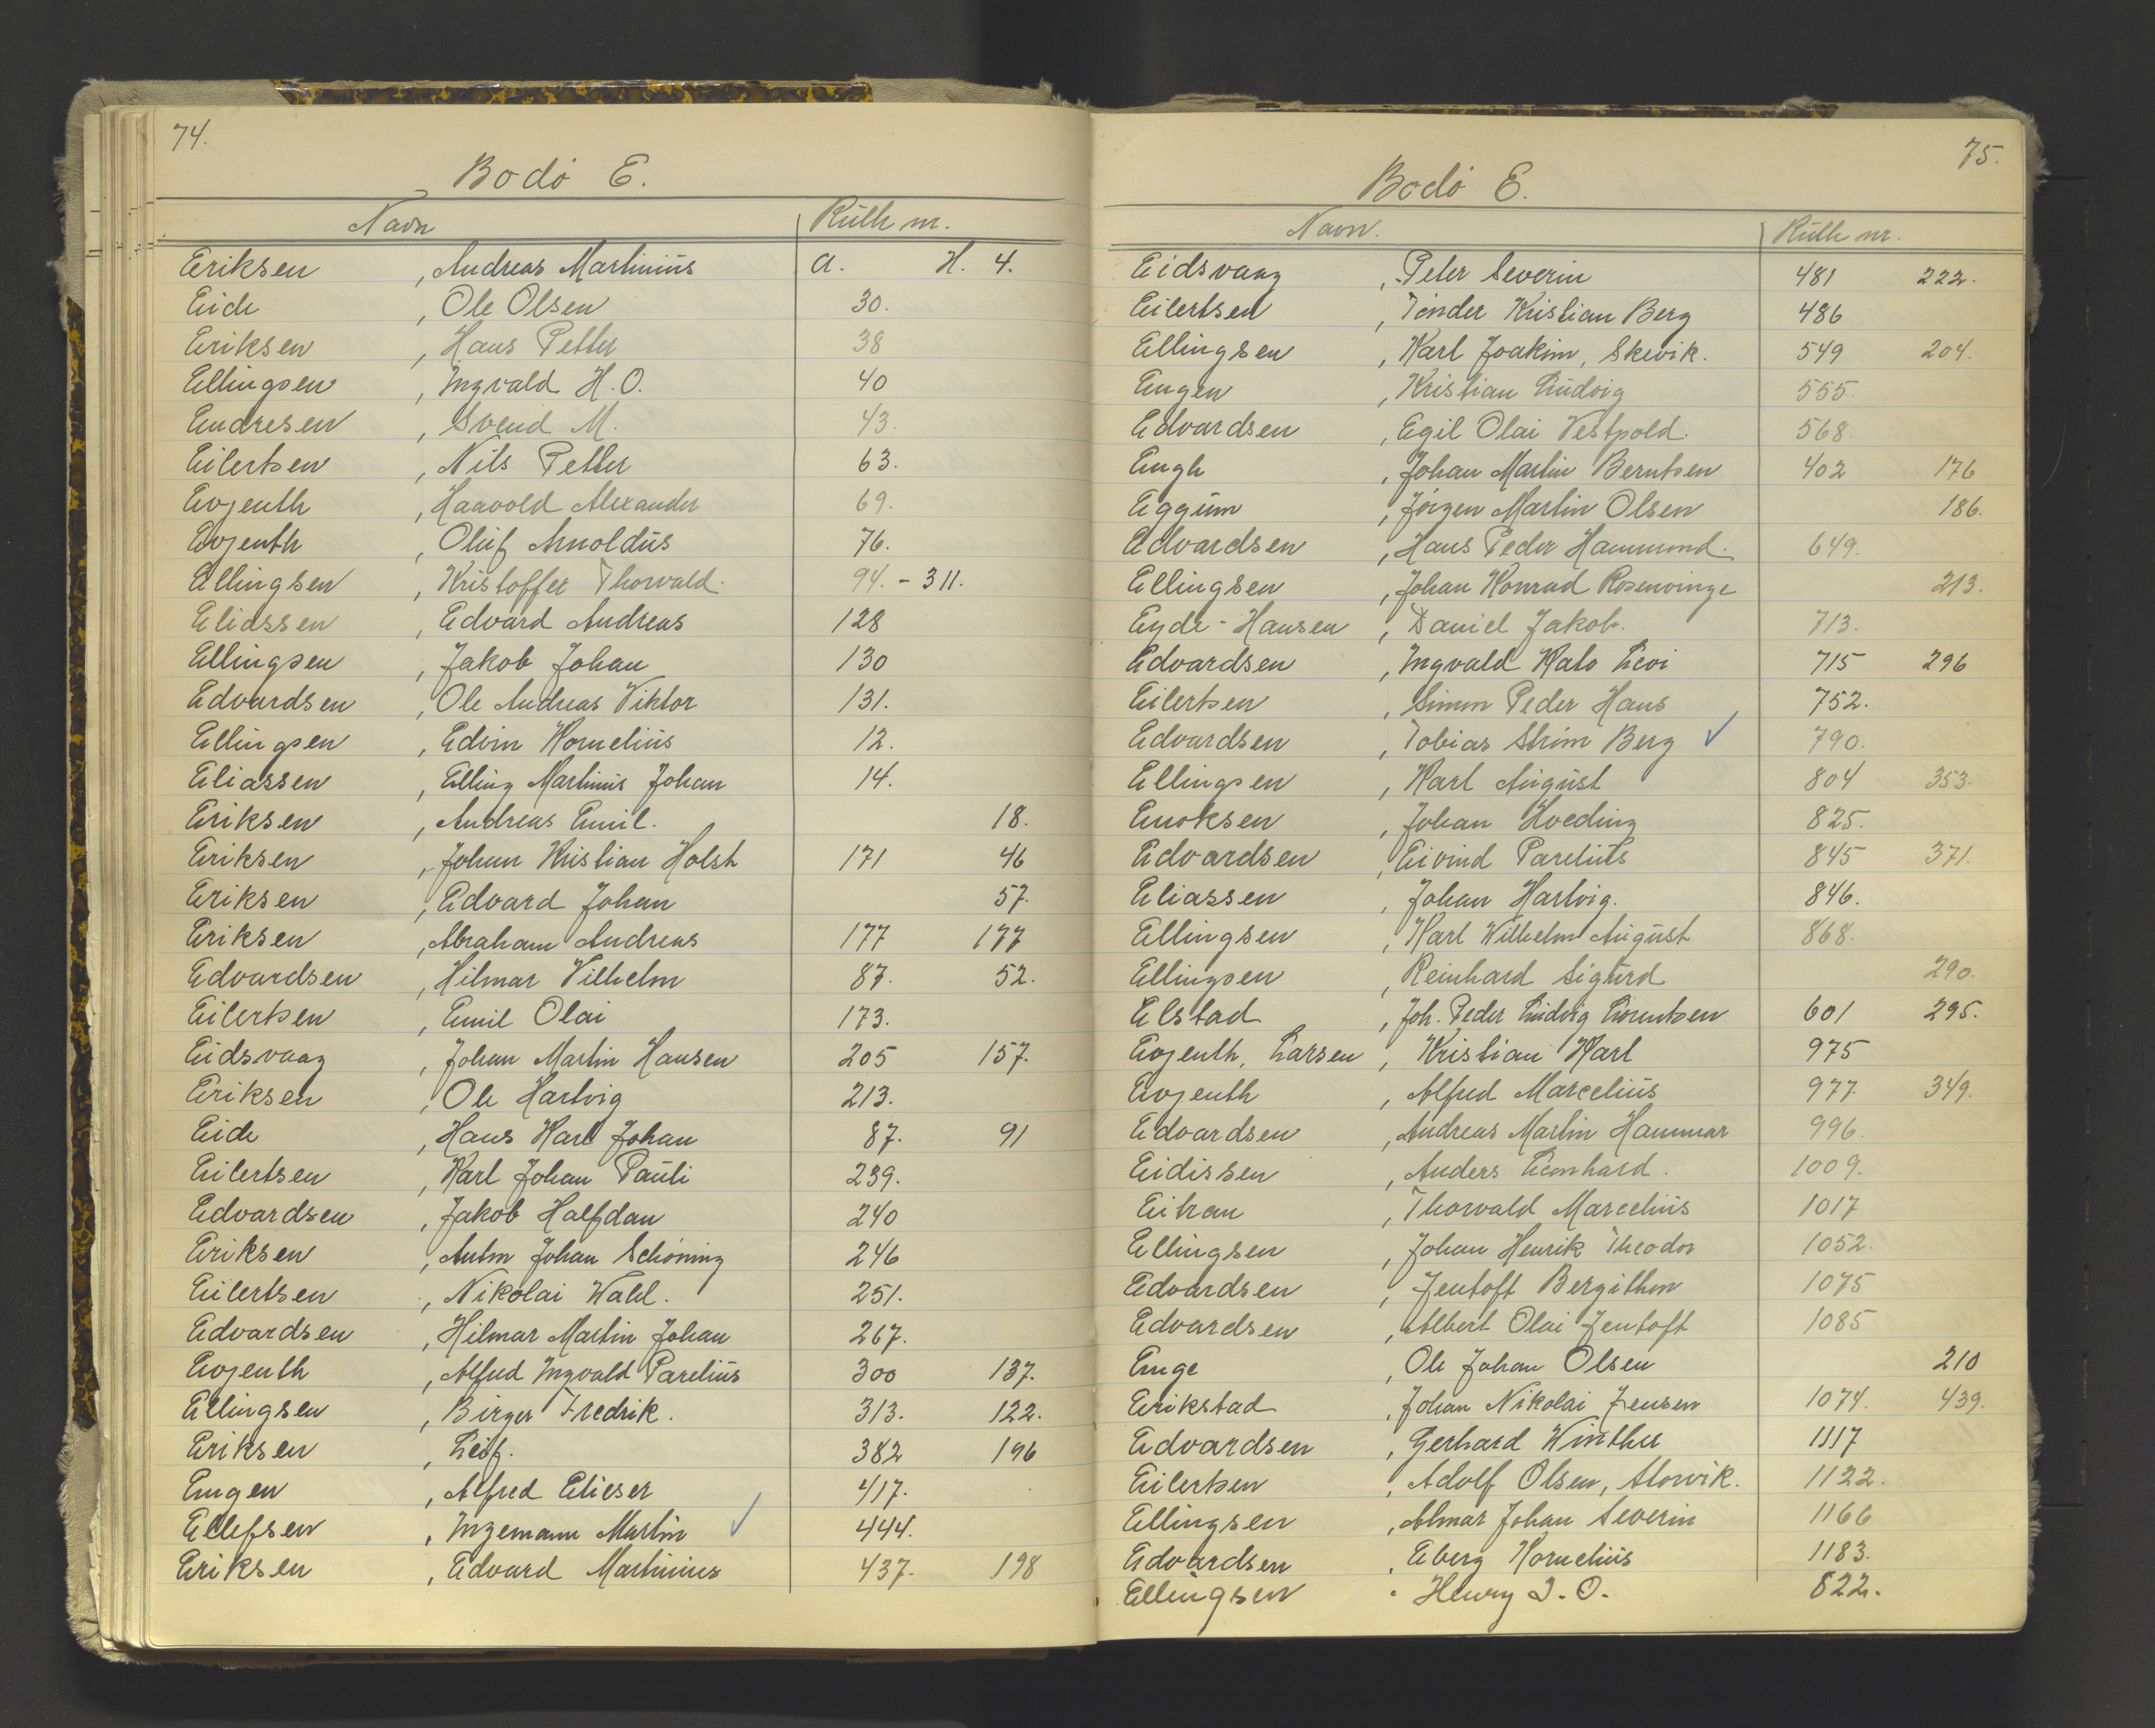 74.
Bodø E.
Navn Rulle nr.
Eriksen , Andreas Martinius A. H. 4.
Eide , Ole Olsen 30.
Eriksen , Hans Petter 38
Ellingsen , Ingvald H. O. 40
Endresen , Svend M. 43.
Eilertsen , Nils Petter 63.
Evjenth , Haavold Alexander 69.
Evjenth , Oluf Arnoldus 76.
Ellingsen , Kristoffer Thorvald. 94. - 311.
Eliassen , Edvard Andreas 128
Ellingsen , Jakob Johan 130
Edvardsen , Ole Andreas Viktor 131.
Ellingsen , Edvin Kornelius 12.
Eliassen , Elling Martinus Johan 14.
Eriksen , Andreas Emil. 18.
Eriksen , Johan Kristian Holst 171 46
Eriksen , Edvard Johan 57.
Eriksen , Abraham Andreas 177 177
Edvardsen , Hilmar Vilhelm 87. 52.
Eilertsen , Emil Olai 173.
Eidsvaag , Johan Martin Hansen 205 157.
Eriksen , Ole Hartvig 213.
Eide , Hans Karl Johan 87. 91
Eilertsen , Karl Johan Pauli 239.
Edvardsen , Jakob Halfdan 240
Eriksen , Anton Johan Schöning 246
Eilertsen , Nikolai Wahl. 251.
Edvardsen , Hilmar Martin Johan 267.
Evjenth , Alfred Ingvald Parelius 300 137.
Ellingsen , Birger Fredrik. 313. 122.
Eriksen , Leif. 382 196
Engen , Alfred Elieser 417.
Ellefsen , Ingemann Martin ✓ 444.
Eriksen , Edvard Martinius 437. 198
75.
Bodø E.
Navn. Rulle nr.
Eidsvaag , Peter Severin 481 222.
Eilertsen , Tønder Kristian Berg 486
Ellingsen , Karl Joakim, Skevik. 549 204.
Engen , Kristian Ludvig 555.
Edvardsen , Egil Olai Vestpold. 568.
Engh , Johan Martin Berntsen 402 176
Eggum , Jörgen Martin Olsen 186.
Edvardsen , Hans Peder Hammond. 649.
Ellingsen , Johan Konrad Rosenvinge 213.
Eyde - Hansen , Daniel Jakob. 713.
Edvardsen , Ingvald Kato Levi 715 296
Eilertsen , Simon Peder Hans 752.
Edvardsen , Tobias Strøm Berg ✓ 790.
Ellingsen , Karl August 804 353.
Enoksen , Johan Hveding 825.
Edvardsen , Eivind Parelius 845 371.
Eliassen , Johan Hartvig. 846.
Ellingsen , Karl Wilhelm August 868.
Ellingsen , Reinhard Sigurd 290.
Elstad , Joh. Peder Ludvig Lorentsen 601 295.
Evjenth, Larsen , Kristian Karl 975
Evjenth , Alfred Marcelius 977 349.
Edvardsen , Andreas Martin Hammar 996.
Eidissen , Anders Leonhard. 1009.
Eitran , Thorvald Marcelius 1017
Ellingsen , Johan Henrik Theodor 1052.
Edvardsen , Jentoft Bergithon 1075
Edvardsen , Albert Olai Jentoft 1085
Enge , Ole Johan Olsen 210
Erikstad , Johan Nikolai Jensen 1074. 439.
Edvardsen , Gerhard Winther 1117
Eilertsen , Adolf Olsen, Alsvik. 1122.
Ellingsen , Almar Johan Severin 1166
Edvardsen , Eberg Kornelius 1183.
Ellingsen . Henry I. O. 822.